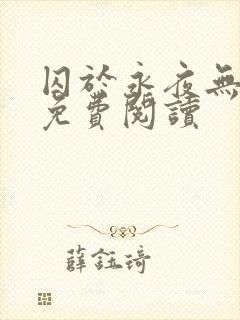 囚於永夜無
免費閱讀
薛鈺琦